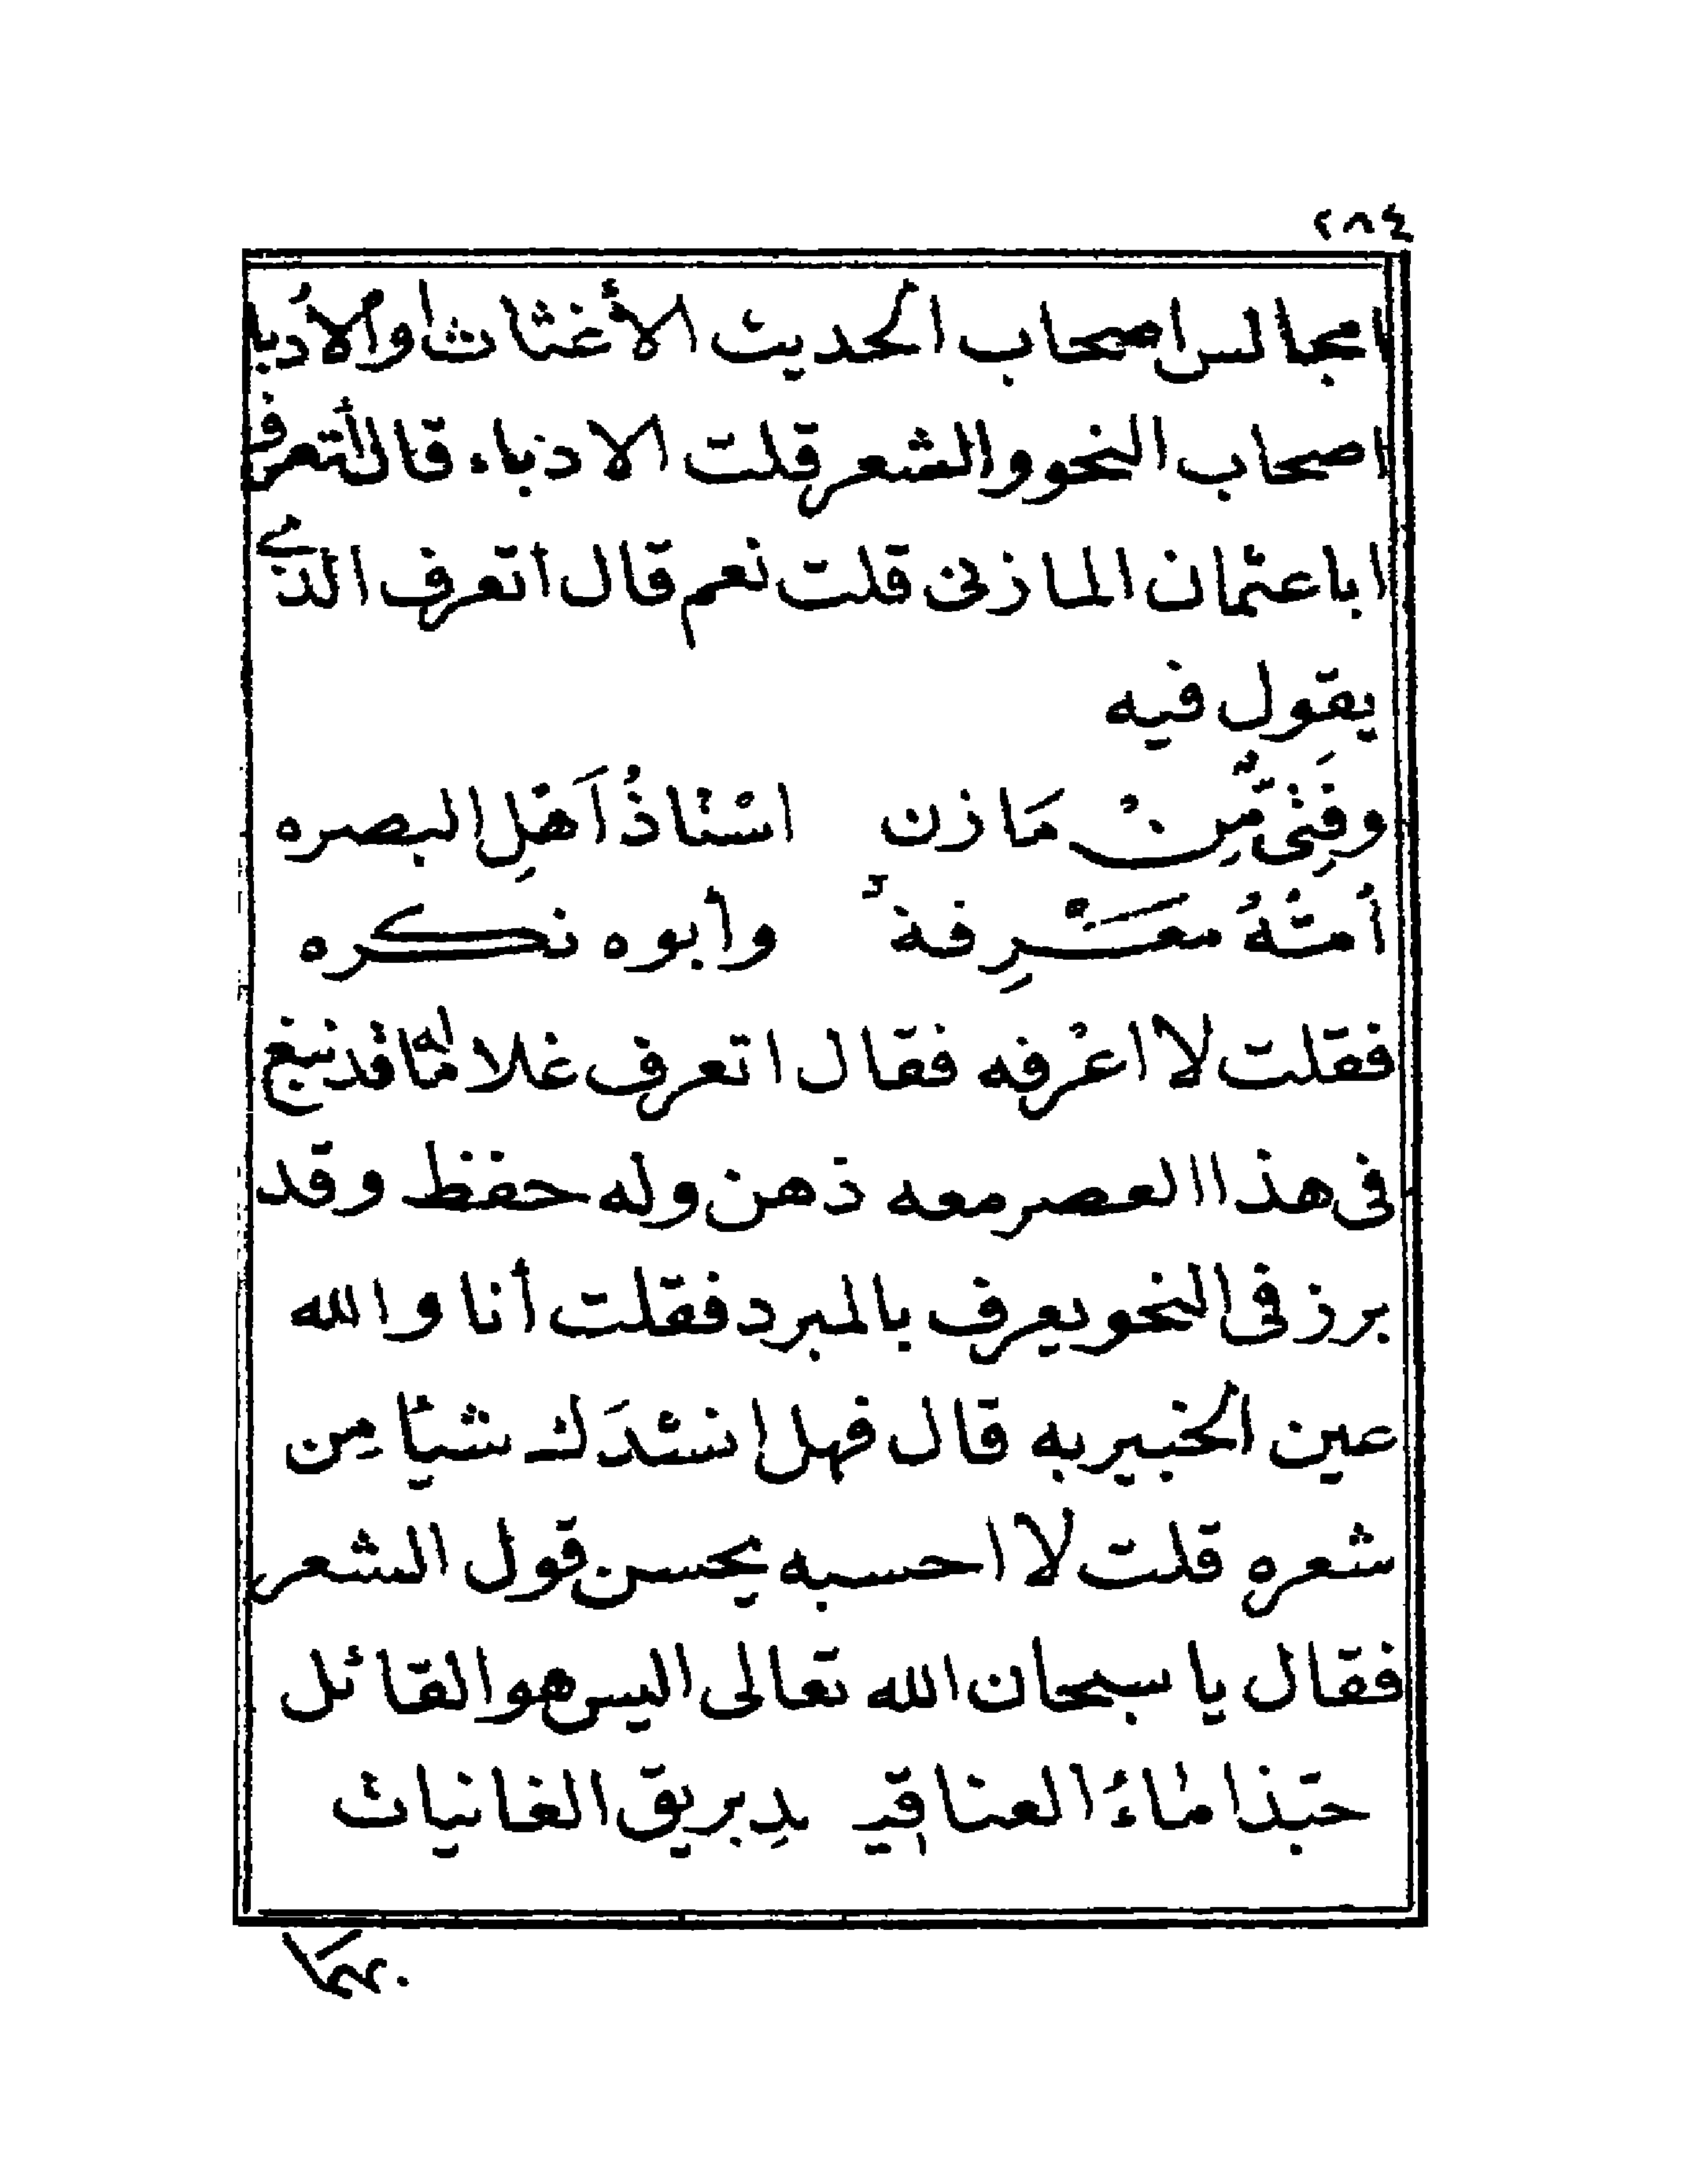 ٢٨٤
امجالس اصحاب الحديث الأغثاث او الأدبا
اصحاب النحو والشعر قلت الادباء قال أتعرف
ابا عثمان المازنى قلت نعم قال اتعرف الذي
يقول فيه
وفتى مِنْ مَازن اسْتاذُ اَهْلِ البصره
أمّهُ معَرِفة وأبوه نكره
فقلت لا اعْرفه فقال اتعرف غلاما له قد نبغ
فى هذا العصر معه ذهن وله حفظ وقد
برز فى النحو يعرف بالمبرد فقلت أنا والله
عين الخبير به قال فهل انشدَك شيأ مِن
شعره قلت لا احسبه يحسن قول الشعر
فقال يا سبحان الله تعالى اليس هو القائل
حبّذا ماءُ العناقيـ ـدِ بريق الغانيات
بهما